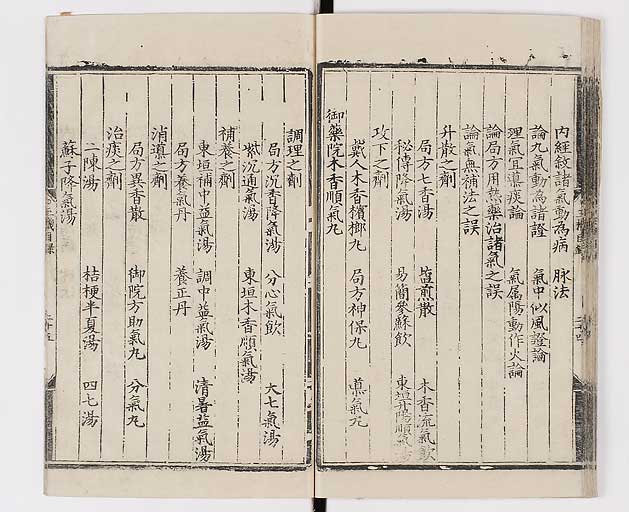 内經敘諸氣動為病　脉法
論九氣動為諸證　氣中似風證論
理氣宜導痰論　氣屬陽動作火論
論局方用熱藥治諸氣之誤
論氣無補法之誤
升散之劑
局方七香湯　塩煎散　木香流氣飲
秘傳降氣湯　易簡參蘇飲　東垣升陽順氣湯
攻下之劑
戴人木香檳榔丸　局方神保丸　導氣丸
御藥院木香順氣丸
調理之劑
局方沉香降氣湯　分心氣飲　大七氣湯
紫沉通氣湯　東垣木香順氣湯
補養之劑
東垣補中益氣湯　調中益氣湯　清暑益氣湯
局方養氣丹　養正丹
消導之劑
局方異香散　御院方助氣丸　分氣丸
治痰之劑
二陳湯　桔梗半夏湯　四七湯
蘇子降氣湯